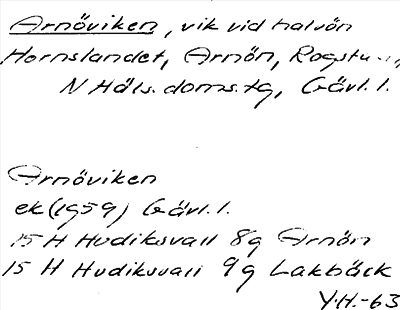 Arnöviken, vik vid halvön
Hornslandet, Arnön,
N Häls. doms.tg, Gävl. l.
Arnöviken
ek (1959) Gävl. l.
15 H Hudiksvall 8g Arnön
15 H Hudiksvall 9g Lakbäck
Y.H.-63